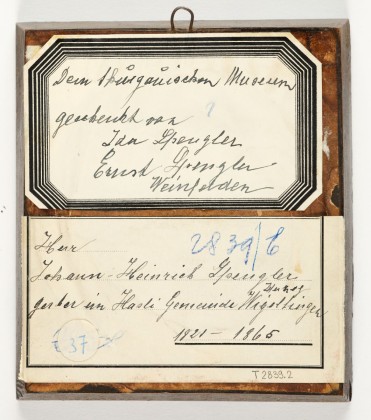 Dem Thurgauischen Museum
geschenkt von
Ida Spengler
Ernst Spengler
Weinfelden
2839/6
Herr
Johann-Heinrich Spengler
gestor im Hasli Gemeinde Wigoltingen
1821 - 1865
37
T 2839.2